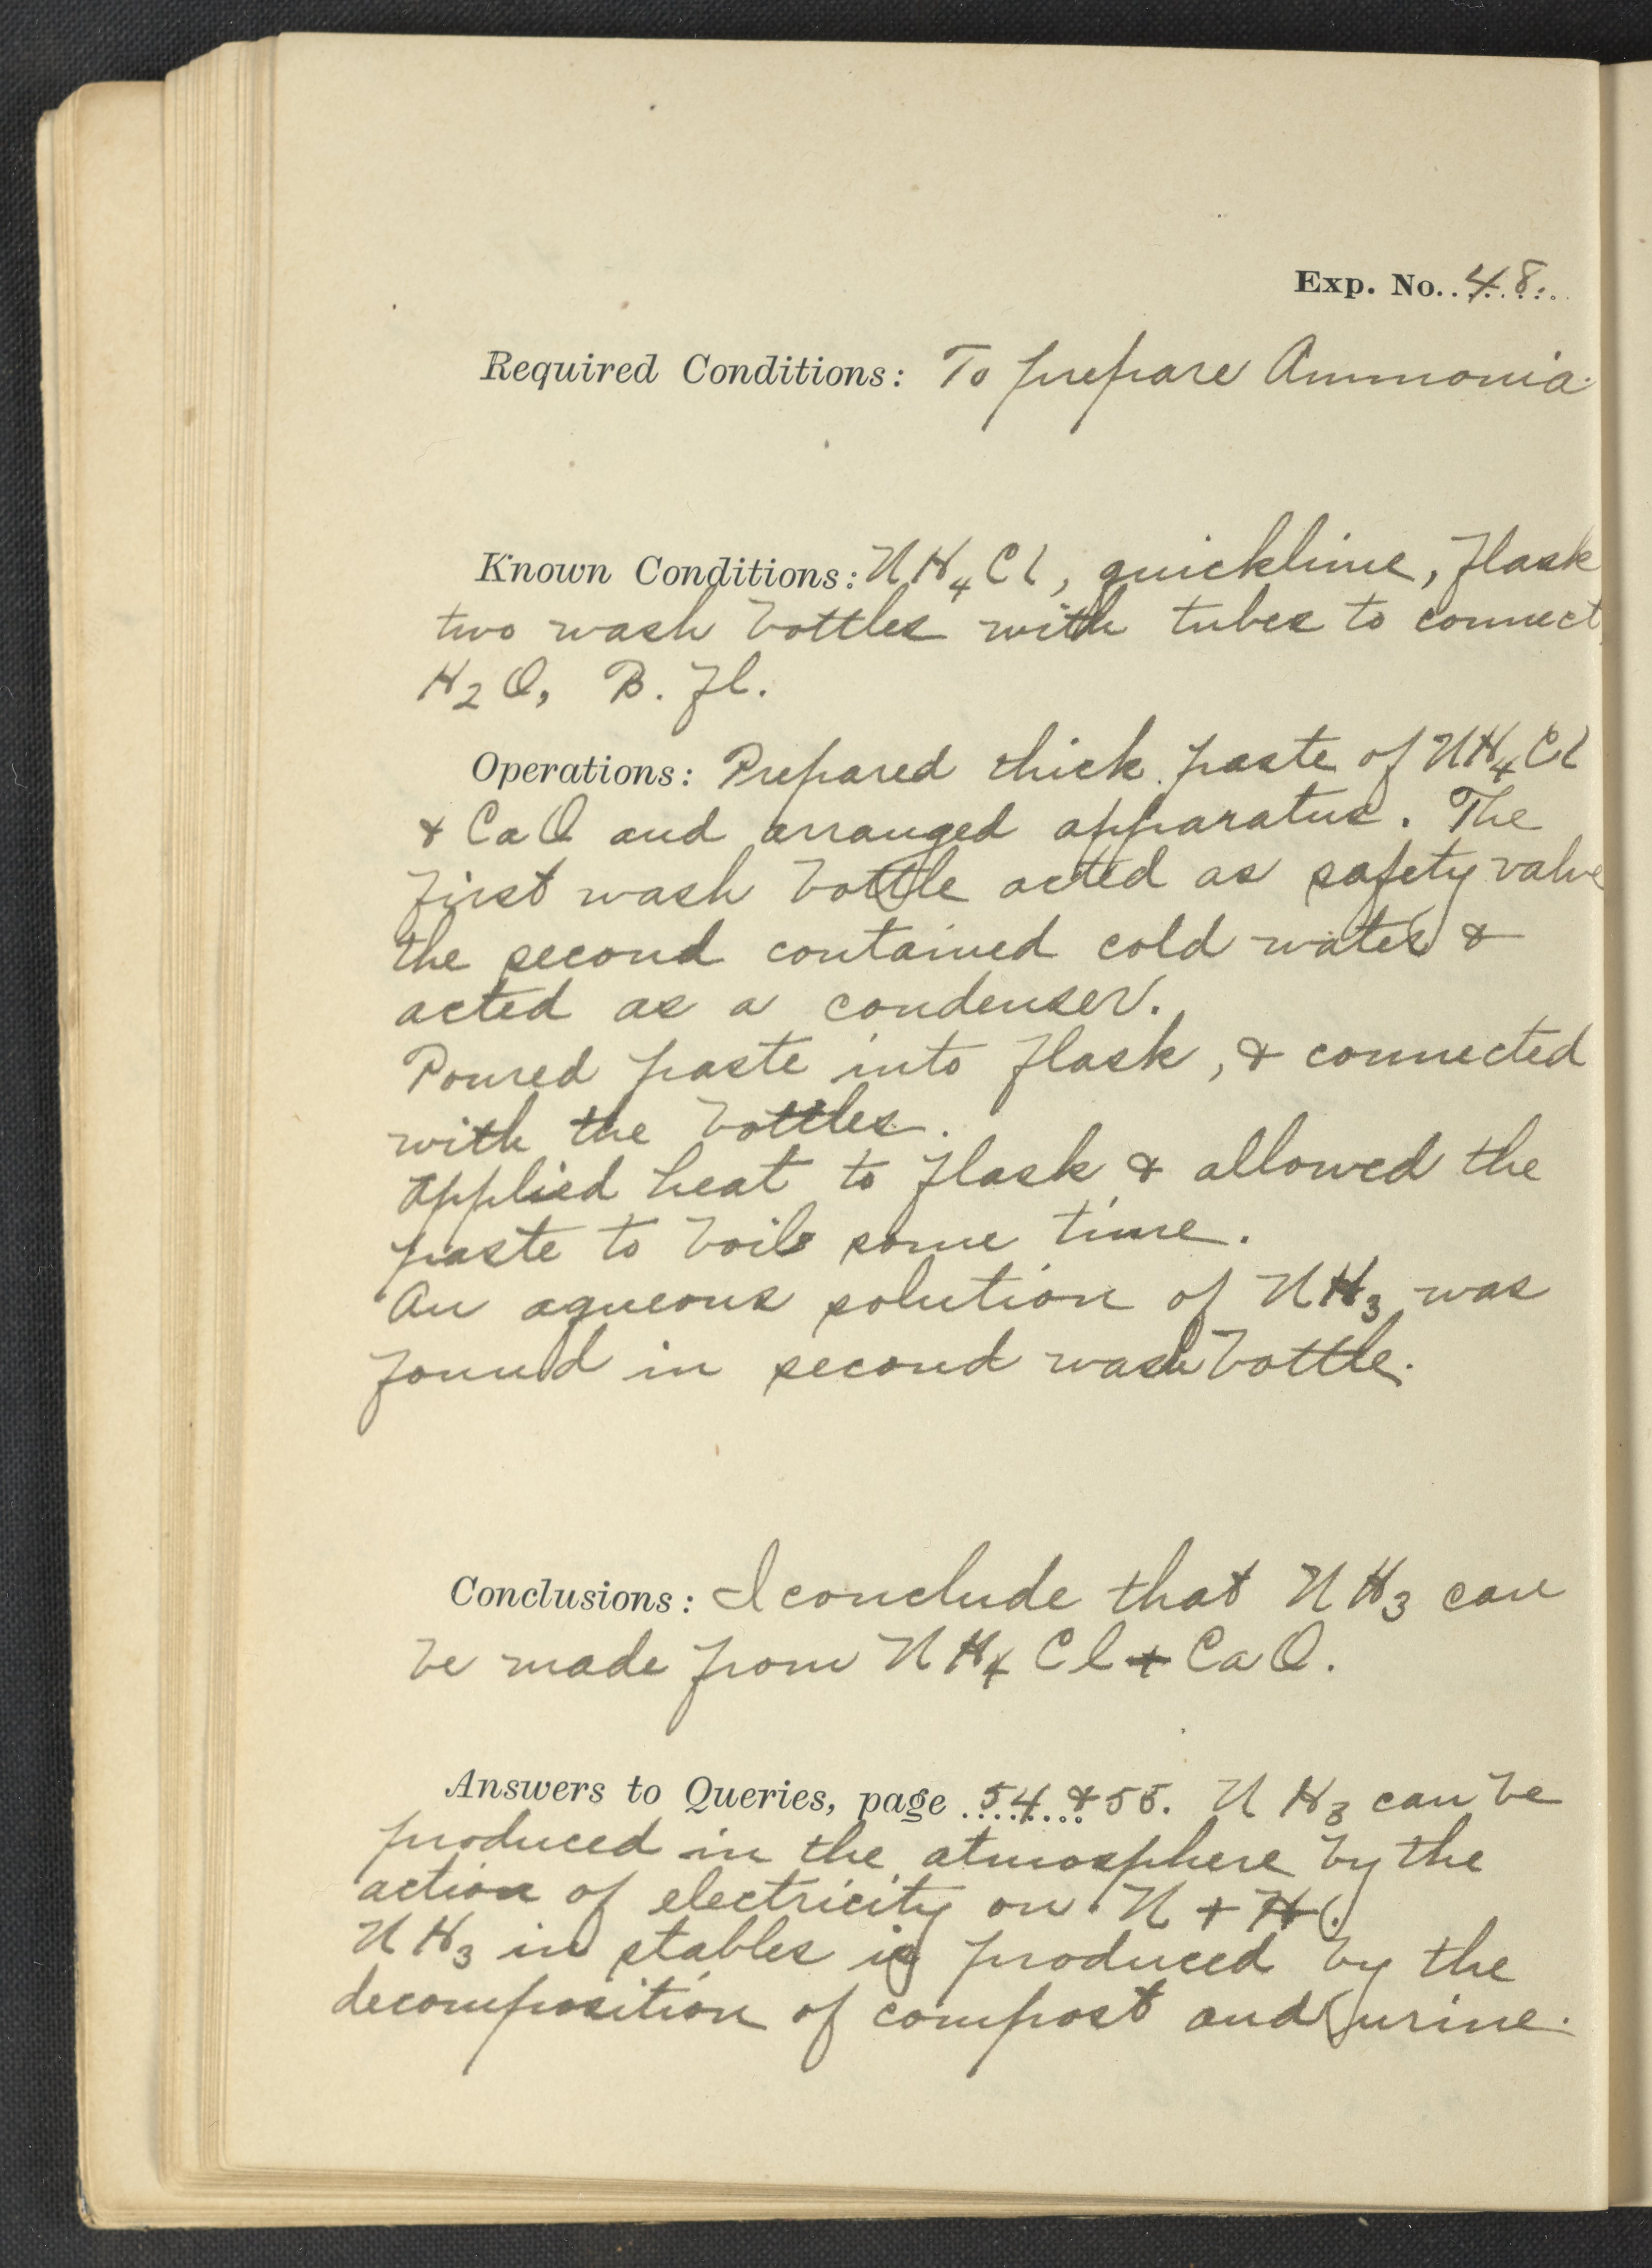 Exp. No. 48.
Required Conditions: To prepare Ammonia.
Known Conditions: NH4Cl, quicklime, flask
two wash bottles with tubes to connect,
H2O, B. fl.
Operations: Prepared thick paste of NH4Cl
& CaO and arranged apparatus. The
first wash bottle acted as safety valve
the second contained cold water &
acted as a condenser.
Poured paste into flask, & connected
with the bottles.
Applied heat to flask & allowed the
paste to boil some time.
An aqueous solution of NH3 was
found in second wash bottle.
Conclusions: I conclude that NH3 can
be made from NH4Cl + CaO.
Answers to Queries, page 54 & 55. NH3 can be
produced in the atmosphere by the
action of electricity on N + H.
NH3 in stables is produced by the
decomposition of compost and urine.